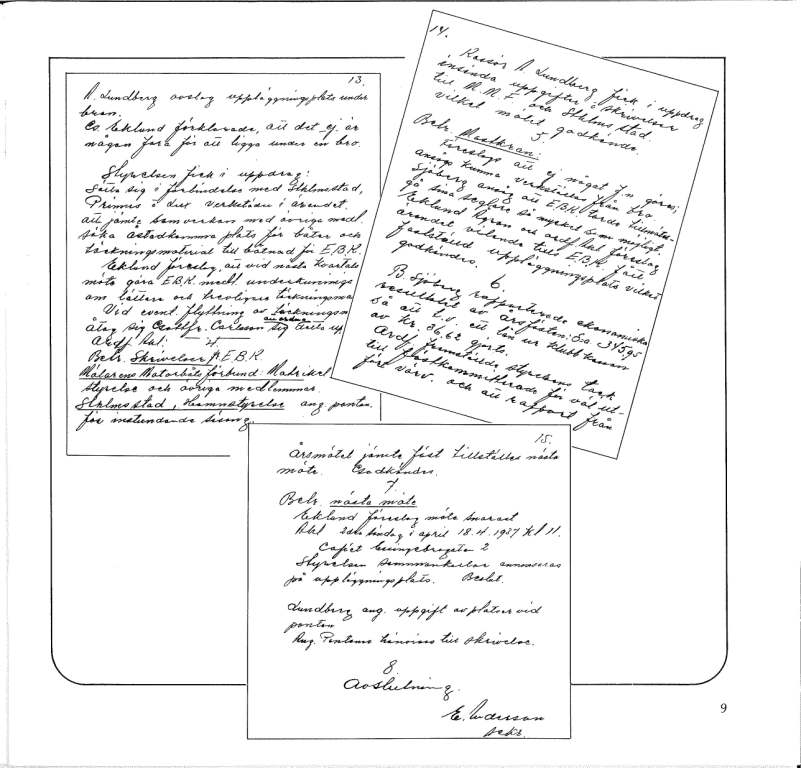 13.
A. Lundberg avslog uppläggningsplats under
bron.
Es. Eklund förklarade, att det ej är
någon fara för att ligga under en bro.
Styrelsen fick i uppdrag:
Sätta sig i förbindelse med Sthlms stad,
Primus o det verkställa i ärendet.
att jämte samverkan med övriga medl.
söka åstadkomma plats för båtar och
täckningsmaterial till båtnad för E.B.K.
Eklund föreslog, att vid nästa kvartals
möte göra E.B.K. medl.
om lättare och trevligare
Vid event. flyttning av täckningsm
åtog sig Carlsson sig
Ordf.
4
Betr. Skrivelser E.B.K.
Mälarens Motorbåts förbund: Matrikel
styrelse och övriga medlemmar.
Sthlms stad, Hamnstyrelse ang. ponton.
för instundande säsong.
14.
Kassör A. Lundberg fick i uppdrag
insända uppgifter o skrivelser
till M.M.F. och Sthlms stad
vilket mötet godkände.
5.
Betr. Mastkran:
föreslogs att ej något f.n. göras;
ansågs kunna verkställas från bro
Sjöberg ansåg att E.B.K. borde tillmötes-
gå små seglare så mycket som möjligt.
Eklund kran och ordf. förslag
ärendet vilande tills E.B.K. fått
fastställd uppläggningsplats vilket
godkändes.
6.
B. Sjöberg rapporterade ekonomiska
resultatet av årsfesten: S:a 345.95
så att t.v. ett lån ur klubbkassan
av kr. 36,62 gjorts.
Ordf. framställde styrelsens tack
till festkommitterade för väl ut-
fört värv. och att rapport från
15.
årsmötet jämte fäst tillställes nästa
möte. Godkändes.
7
Betr. nästa möte
Eklund föreslog möte snarast
2dra söndag i april 18.4.1937 kl 11.
Caféet 2
Styrelsen sammankallar annonseras
på uppläggningsplats. Beslöt.
Lundberg ang. uppgift av platser vid
ponton
Ang. Ponton hänvisas till skrivelse.
8.
Avslutning.
E. Anderson
sekr.
9